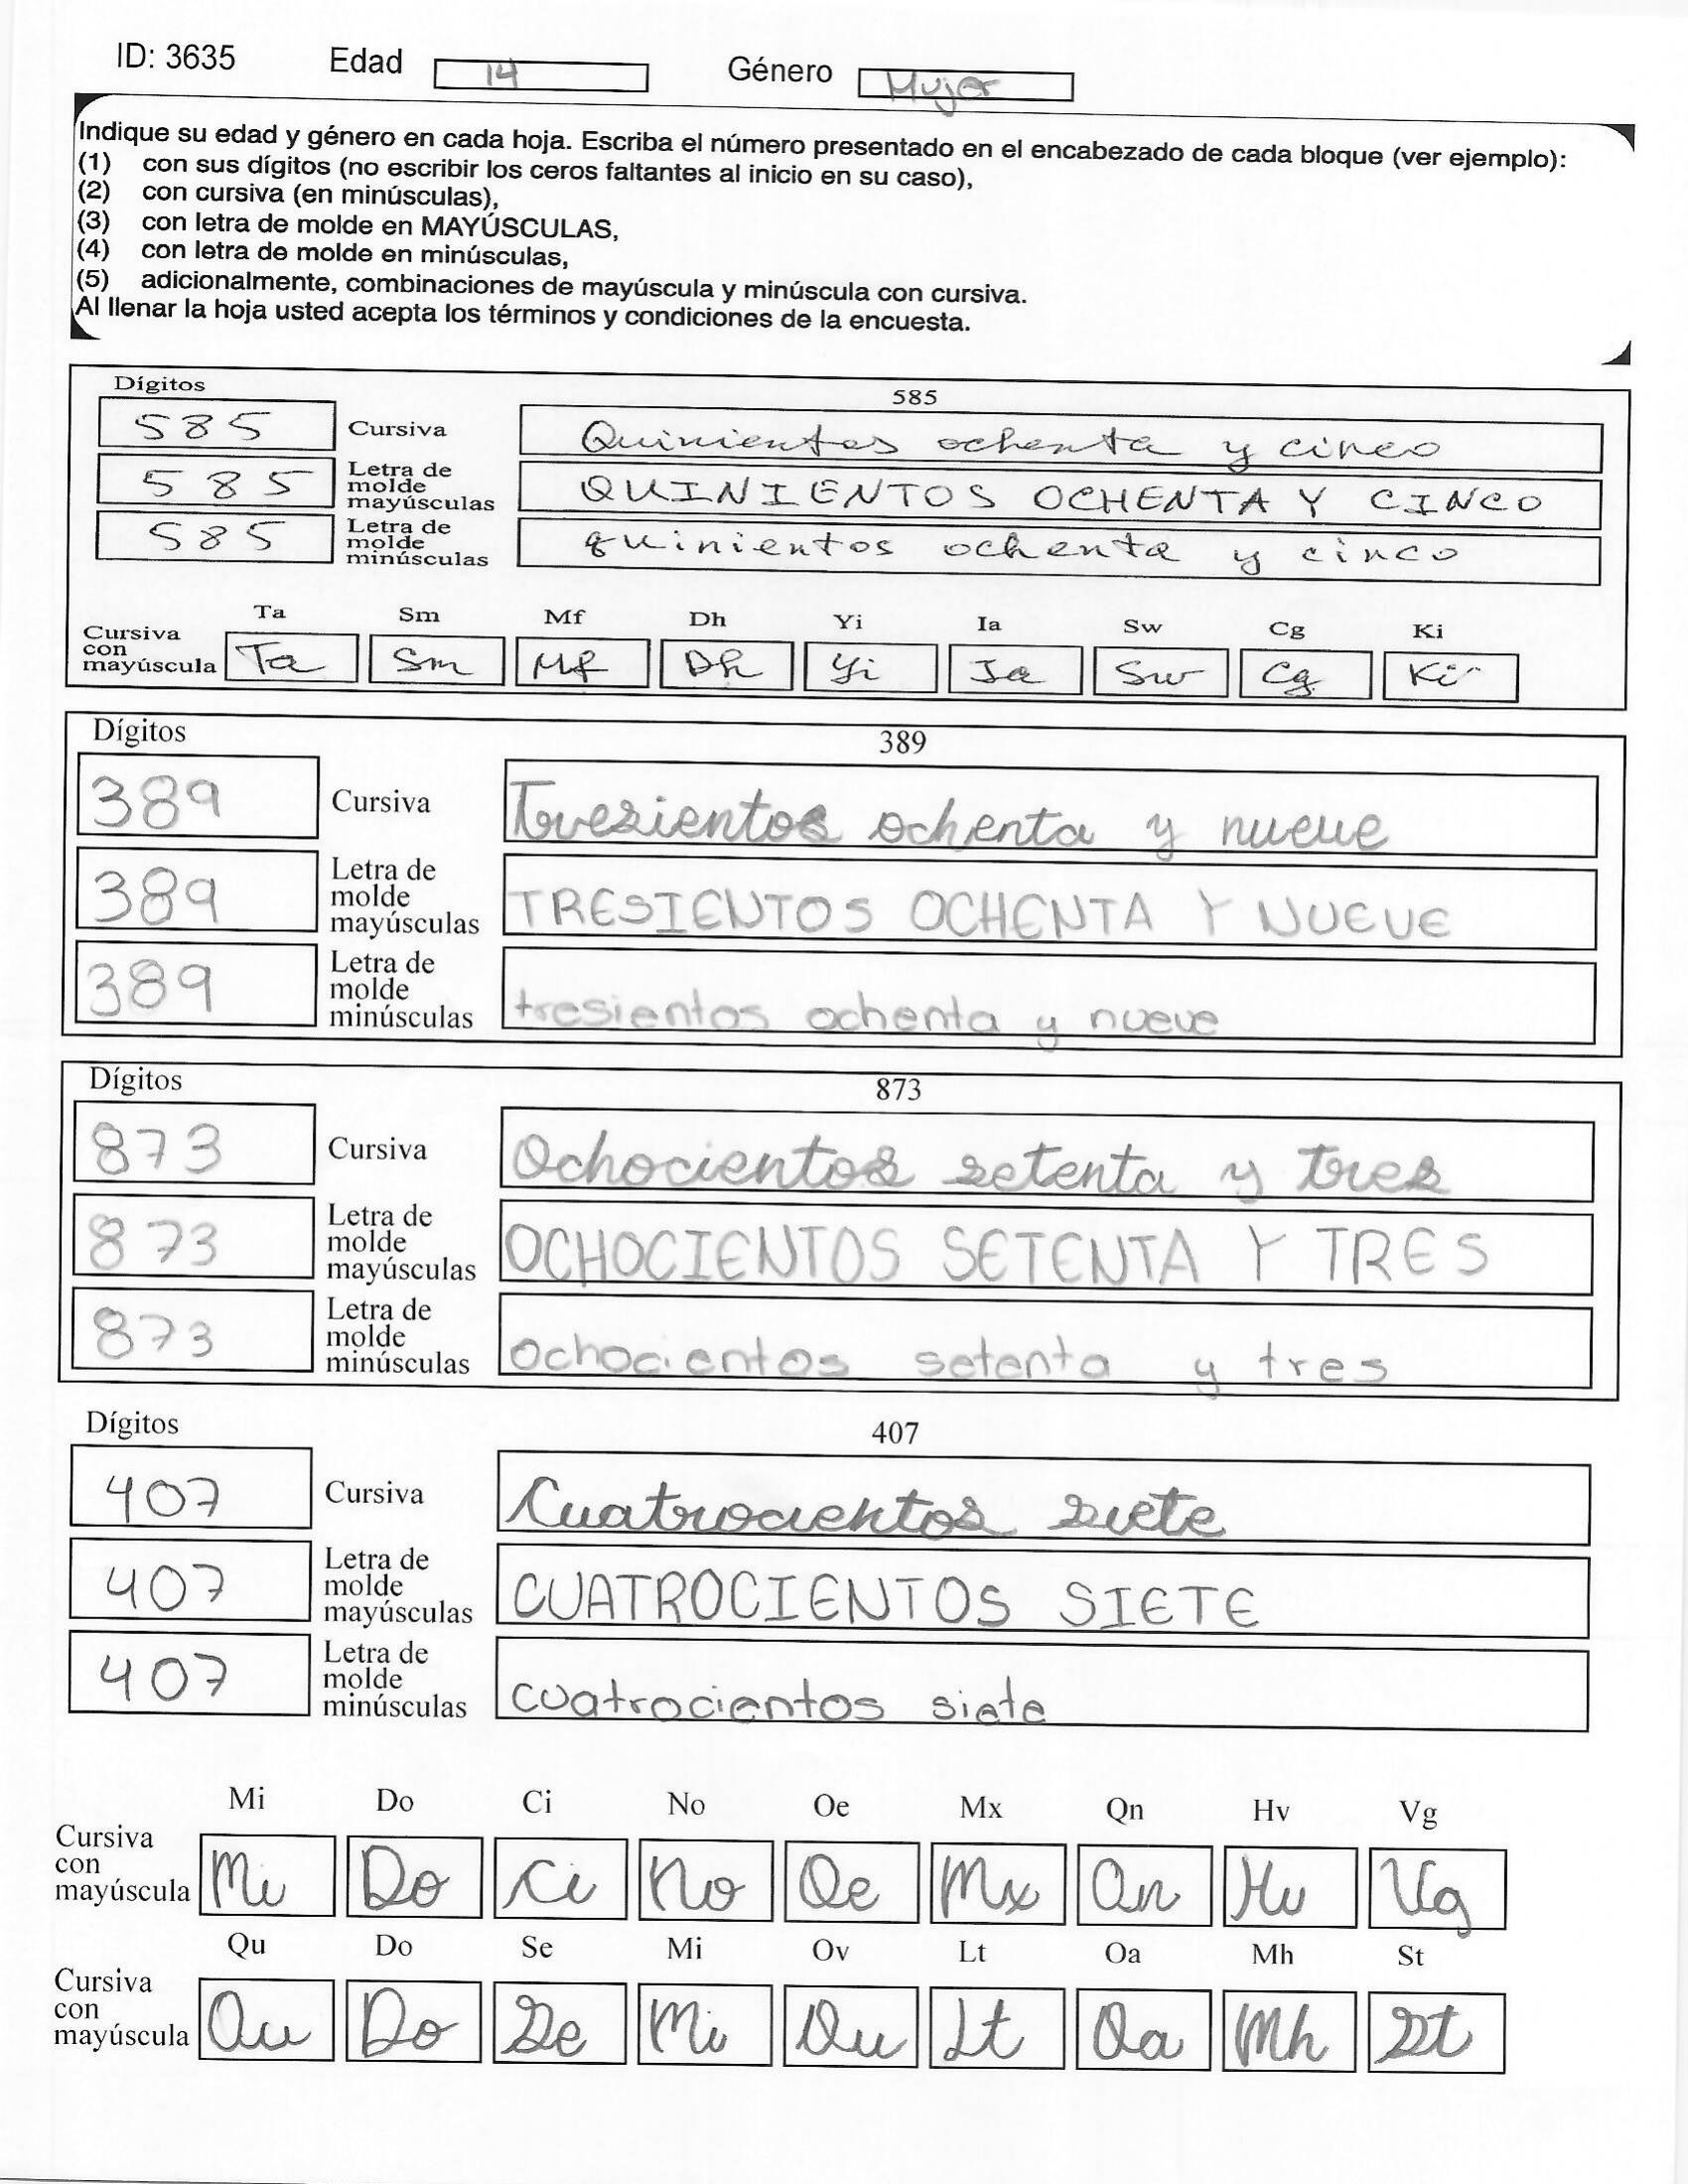 ID: 3635 Edad 14 Género Mujer
Indique su edad y género en cada hoja. Escriba el número presentado en el encabezado de cada bloque (ver ejemplo):
(1) con sus dígitos (no escribir los ceros faltantes al inicio en su caso),
(2) con cursiva (en minúsculas),
(3) con letra de molde en MAYÚSCULAS,
(4) con letra de molde en minúsculas,
(5) adicionalmente, combinaciones de mayúscula y minúscula con cursiva.
Al llenar la hoja usted acepta los términos y condiciones de la encuesta.
Dígitos 585
585 Cursiva Quinientos ochenta y cinco
585 Letra de molde mayúsculas QUINIENTOS OCHENTA Y CINCO
585 Letra de molde minúsculas quinientos ochenta y cinco
Ta Sm Mf Dh Yi Ia Sw Cg Ki
Cursiva con mayúscula Ta Sm Mf Dh Yi Ia Sw Cg Ki
Dígitos 389
389 Cursiva Tresientos ochenta y nueve
389 Letra de molde mayúsculas TRESIENTOS OCHENTA Y NUEVE
389 Letra de molde minúsculas tresientos ochenta y nueve
Dígitos 873
873 Cursiva Ochocientos setenta y tres
873 Letra de molde mayúsculas OCHOCIENTOS SETENTA Y TRES
873 Letra de molde minúsculas ochocientos setenta y tres
Dígitos 407
407 Cursiva Cuatrocientos siete
407 Letra de molde mayúsculas CUATROCIENTOS SIETE
407 Letra de molde minúsculas cuatrocientos siete
Mi Do Ci No Oe Mx Qn Hv Vg
Cursiva con mayúscula Mi Do Ci No Oe Mx Qn Hv Vg
Qu Do Se Mi Ov Lt Oa Mh St
Cursiva con mayúscula Qu Do Se Mi Ov Lt Oa Mh St